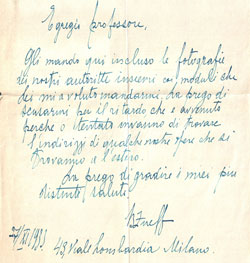 Egregio Professore,
Gli mando qui incluso le fotografie
dei nostri autoritte insiemi coi moduli che
Lei mi a voluto mandarmi. La prego di
scusarmi per il ritardo che e avvenuto
perche o tentato invanno di trovare
l'indirizzi di qualche nostre opere che si
trovanno a l'estero.
La prego di gradire i miei più
distinti saluti
27/XI/1933
43, Viale Lombardia Milano.